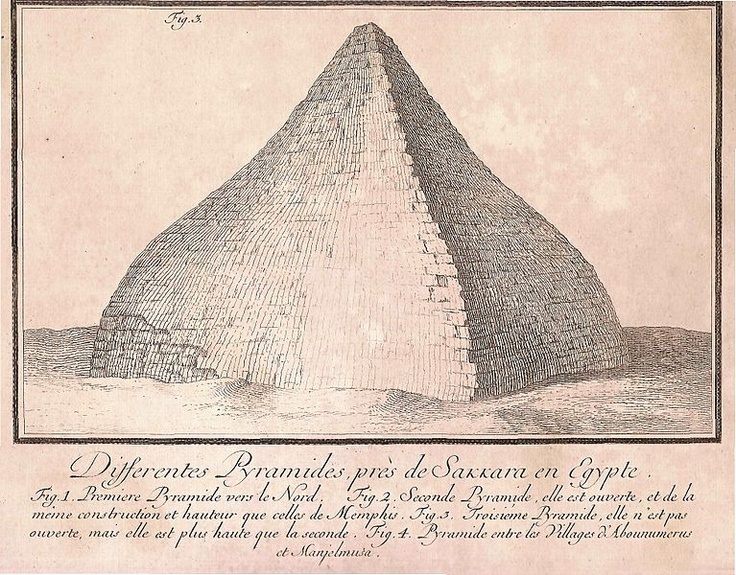 Fig. 3.
Differentes Pyramides, près de Sakkara en Egypte.
Fig. 1. Premiere Pyramide vers le Nord. Fig. 2. Seconde Pyramide, elle est ouverte, et de la
même construction et hauteur que celles de Memphis. Fig. 3. Troisiéme Pyramide, elle n'est pas
ouverte, mais elle est plus haute que la seconde. Fig. 4. Pyramide entre les Villages d'Abounumerus
et Manjelmusa.